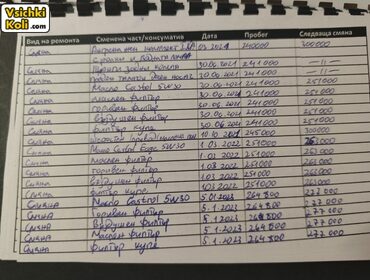 Vsichki
Koli.com
Вид на ремонта Сменена част/консуматив Дата Пробег Следваща смяна
Смяна 03.2021 240000 300 000
Смяна
Смяна 30.06.2021 241.000 -11-
Смяна 30.06.2021 241.000 -11-
Смяна Масло Castrol 5W30 30.06.2021 241000 251000
Смяна маслен филтър 30.06.2021 241000 251000
Смяна горивен филтър 30.06.2021 241000 251000
Смяна въздушен филтър 30.06.2021 241000 251000
Смяна филтър купе 30.06.2021 241000 251000
Смяна 10.10.2021 245000 300000
Смяна Масло Castrol Edge 5W30 1.03.2022 251000 263000
Смяна Маслен филтър 1.03.2022 251000 263000
Смяна горивен филтър 1.03.2022 251000 263000
Смяна въздушен филтър 1.03.2022 251000 263000
Смяна филтър купе 1.03.2022 251000 263000
Смяна Масло Castrol 5W30 5.01.2023 264800 277000
Смяна Горивен филтър 5.1.2023 264.800 277.000
Смяна Въздушен филтър 5.1.2023 264800 277000
Смяна Маслен филтър 5.1.2023 264800 277000
Смяна Филтър купе 5.1.2023 264800 277000